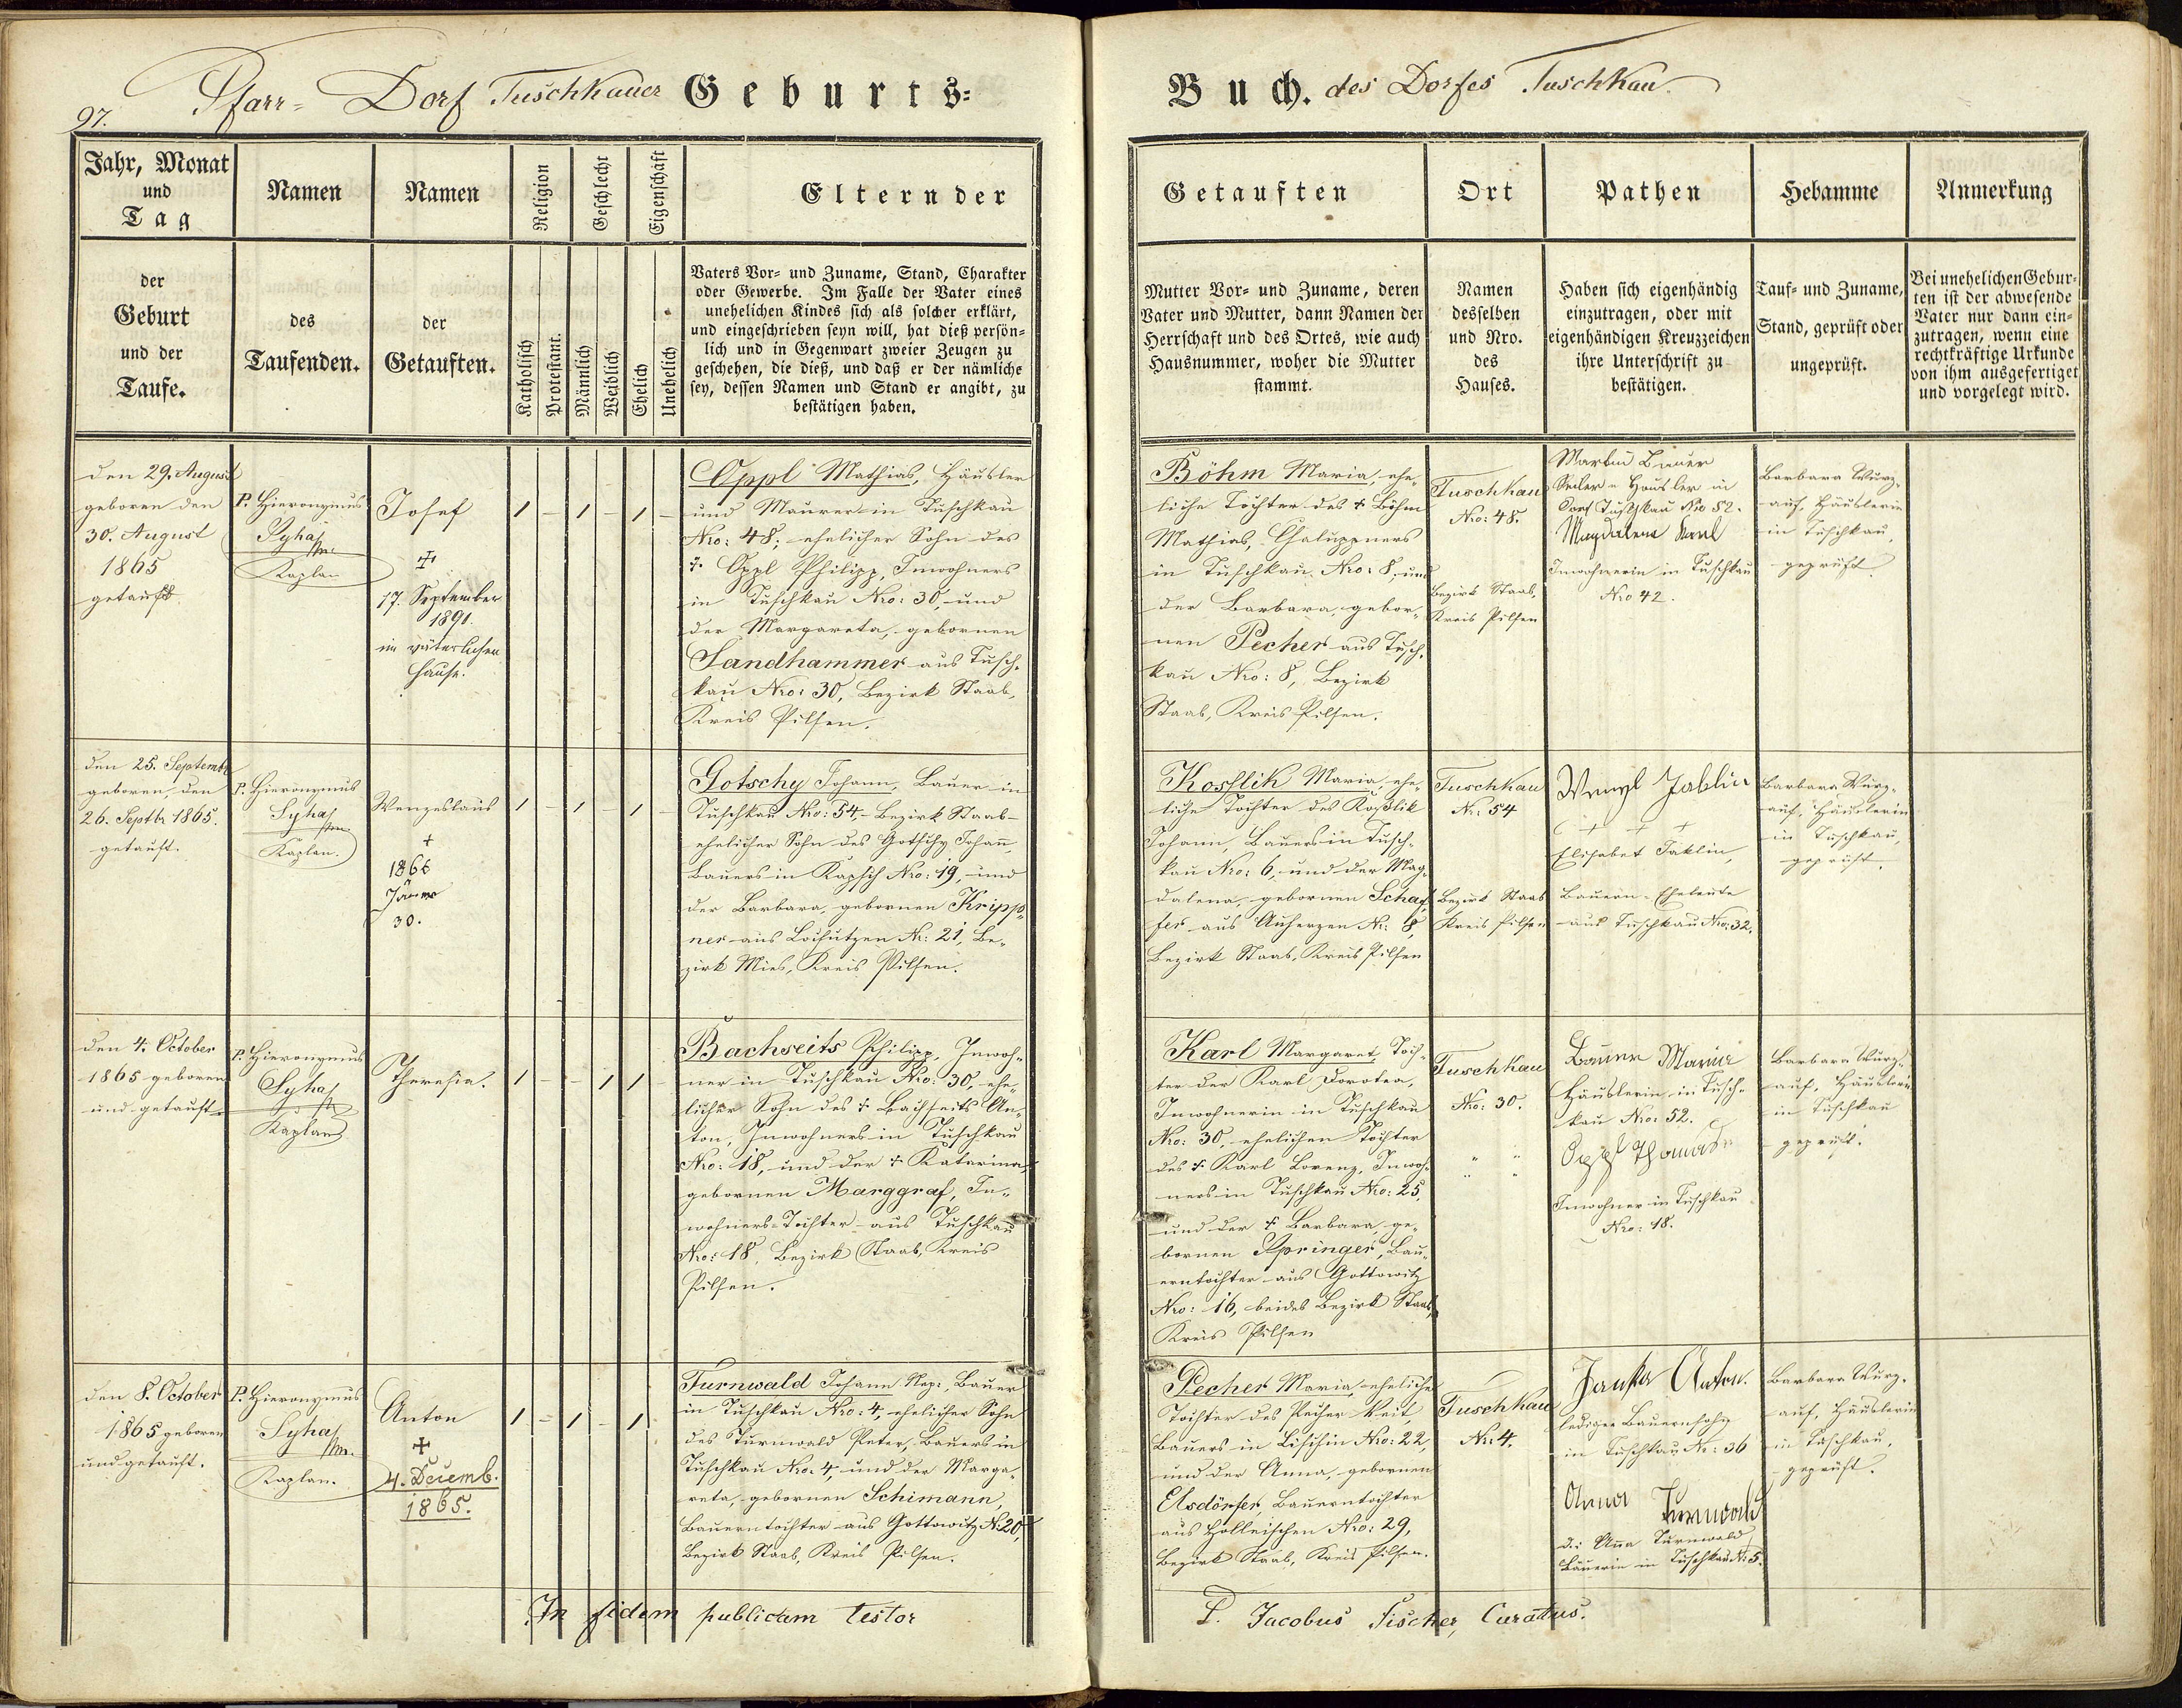 97.
Pfarr- Dorf Tuschkauer Geburts=
Buch. des Dorfes Tuschkau.
Jahr, Monat
und
Tag
der
Geburt
und der
Taufe.
Namen
des
Taufenden.
Namen
der
Getauften.
Religion
Katholisch
Protestant.
Geschlecht
Männlich
Weiblich
Eigenschaft
Ehelich
Unehelich
Eltern der
Vaters Vor= und Zuname, Stand, Charakter
oder Gewerbe. Im Falle der Vater eines
unehelichen Kindes sich als solcher erklärt,
und eingeschrieben seyn will, hat dieß persön=
lich und in Gegenwart zweier Zeugen zu
geschehen, die dieß, und daß er der nämliche
sey, dessen Namen und Stand er angibt, zu
bestätigen haben.
Getauften
Mutter Vor= und Zuname, deren
Vater und Mutter, dann Namen der
Herrschaft und des Ortes, wie auch
Hausnummer, woher die Mutter
stammt.
Ort
Namen
desselben
und Nro.
des
Hauses.
Pathen
Haben sich eigenhändig
einzutragen, oder mit
eigenhändigen Kreuzzeichen
ihre Unterschrift zu
bestätigen.
Hebamme
Tauf= und Zuname,
Stand, geprüft oder
ungeprüft.
Anmerkung
Bei unehelichen Gebur=
ten ist der abwesende
Vater nur dann ein=
zutragen, wenn eine
rechtkräftige Urkunde
von ihm ausgefertiget
und vorgelegt wird.
den 29. August
geboren den
30. August
1865
getauft
P. Hieronymus
Syha
Kaplan
Josef
17. September
1890.
im väterlichen
Hause.
1 – 1 – 1 –
Oppl Mathias, Häusler
und Maurer in Tuschkau
Nro: 48; ehelicher Sohn des
† Oppl Philipp, Inwohners
in Tuschkau Nro: 30, und
der Margareta, gebornen
Sandhammer aus Tusch-
kau Nro: 30, Bezirk Staab,
Kreis Pilsen.
Böhm Maria, ehe-
liche Tochter des † Böhm
Mathias, Chaluppners
in Tuschkau Nro: 8, und
der Barbara, gebor-
nen Pecher aus Tusch-
kau Nro: 8, Bezirk
Staab, Kreis Pilsen.
Tuschkau
Nro: 48.
Bezirk Staab,
Kreis Pilsen
Häusler in
Dorf Tuschkau Nro 52.
Magdalena
Inwohnerin in Tuschkau
Nro 42.
Barbara Wurz-
auf, Häuslerin
in Tuschkau,
geprüft.
den 25. Septemb.
geboren, den
26. Septbr 1865.
getauft.
P. Hieronymus
Syha
Kaplan.
Wenzeslaus
†
1866
Jänner
30.
1 – 1 – 1 –
Gotschy Johann, Bauer in
Tuschkau Nro: 54, Bezirk Staab
ehelicher Sohn des Gotschy Johann
Bauers in Kapsch Nro: 19, und
der Barbara, gebornen Kripp-
ner aus Lochutzen Nr: 21, Be-
zirk Mies, Kreis Pilsen.
Koschlik Maria, ehe-
liche Tochter des Koschlik
Johann, Bauers in Tusch-
kau Nro: 6, und der Mag-
dalena, gebornen Schaf-
fer aus Auherzen Nr: 8,
Bezirk Staab, Kreis Pilsen
Tuschkau
Nr: 54
Bezirk Staab
Kreis Pilsen
Wenzl Jaklin
+ + +
Elisabet Jaklin,
Bauern-Eheleute
aus Tuschkau Nro: 32.
Barbara Wurz-
auf, Häuslerin
in Tuschkau,
geprüft.
den 4. October
1865 geboren
und getauft
P. Hieronymus
Syha
Kaplan
Theresia.
1 – – 1 1 –
Bachseits Philipp, Inwoh-
ner in Tuschkau Nro: 30, ehe-
licher Sohn des † Bachseits An-
ton, Inwohners in Tuschkau
Nro: 18, und der † Katarina,
gebornen Marggraf, In-
wohners-Tochter aus Tuschkau
Nro: 18, Bezirk Staab, Kreis
Pilsen.
Karl Margaret, Toch-
ter der Karl Dorotea,
Inwohnerin in Tuschkau
Nro: 30, ehelichen Tochter
des † Karl Lorenz, Inwoh-
ners in Tuschkau Nro: 25,
und der † Barbara ge-
bornen Springer, Bau-
erntochter aus Gottowitz
Nro: 16, beides Bezirk Staab,
Kreis Pilsen
Tuschkau
Nro: 30.
Bauer Maria
Häuslerin in Tusch-
kau Nro: 52.
Oppl Thomas
Inwohner in Tuschkau
Nro: 18.
Barbara Wurz-
auf, Häuslerin
in Tuschkau
geprüft.
den 8. October
1865 geboren
und getauft.
P. Hieronymus
Syha
Kaplan.
Anton
4. Decemb.
1865.
1 – 1 – 1
Turnwald Johann Nep:, Bauer
in Tuschkau Nro: 4, ehelicher Sohn
des Turnwald Peter, Bauers in
Tuschkau Nro: 4, und der Marga-
reta, gebornen Schimann,
Bauerntochter aus Gottowitz N: 20,
Bezirk Staab, Kreis Pilsen.
Pecher Maria, eheliche
Tochter des Pecher Veit,
Bauers in Lischin Nro: 22,
und der Anna, gebornen
Elsdörfer, Bauerntochter
aus Holleischen Nro: 29,
Bezirk Staab, Kreis Pilsen.
Tuschkau
Nr: 4.
Anton.
lediger Bauernsohn
in Tuschkau Nr: 36
Anna Turnwald
d.i. Anna Turnwald
Bäuerin in Tuschkau N: 5.
Barbara Wurz-
auf, Häuslerin
in Tuschkau,
geprüft.
In fidem publicam testor
P. Jacobus Fischer, Curatus.